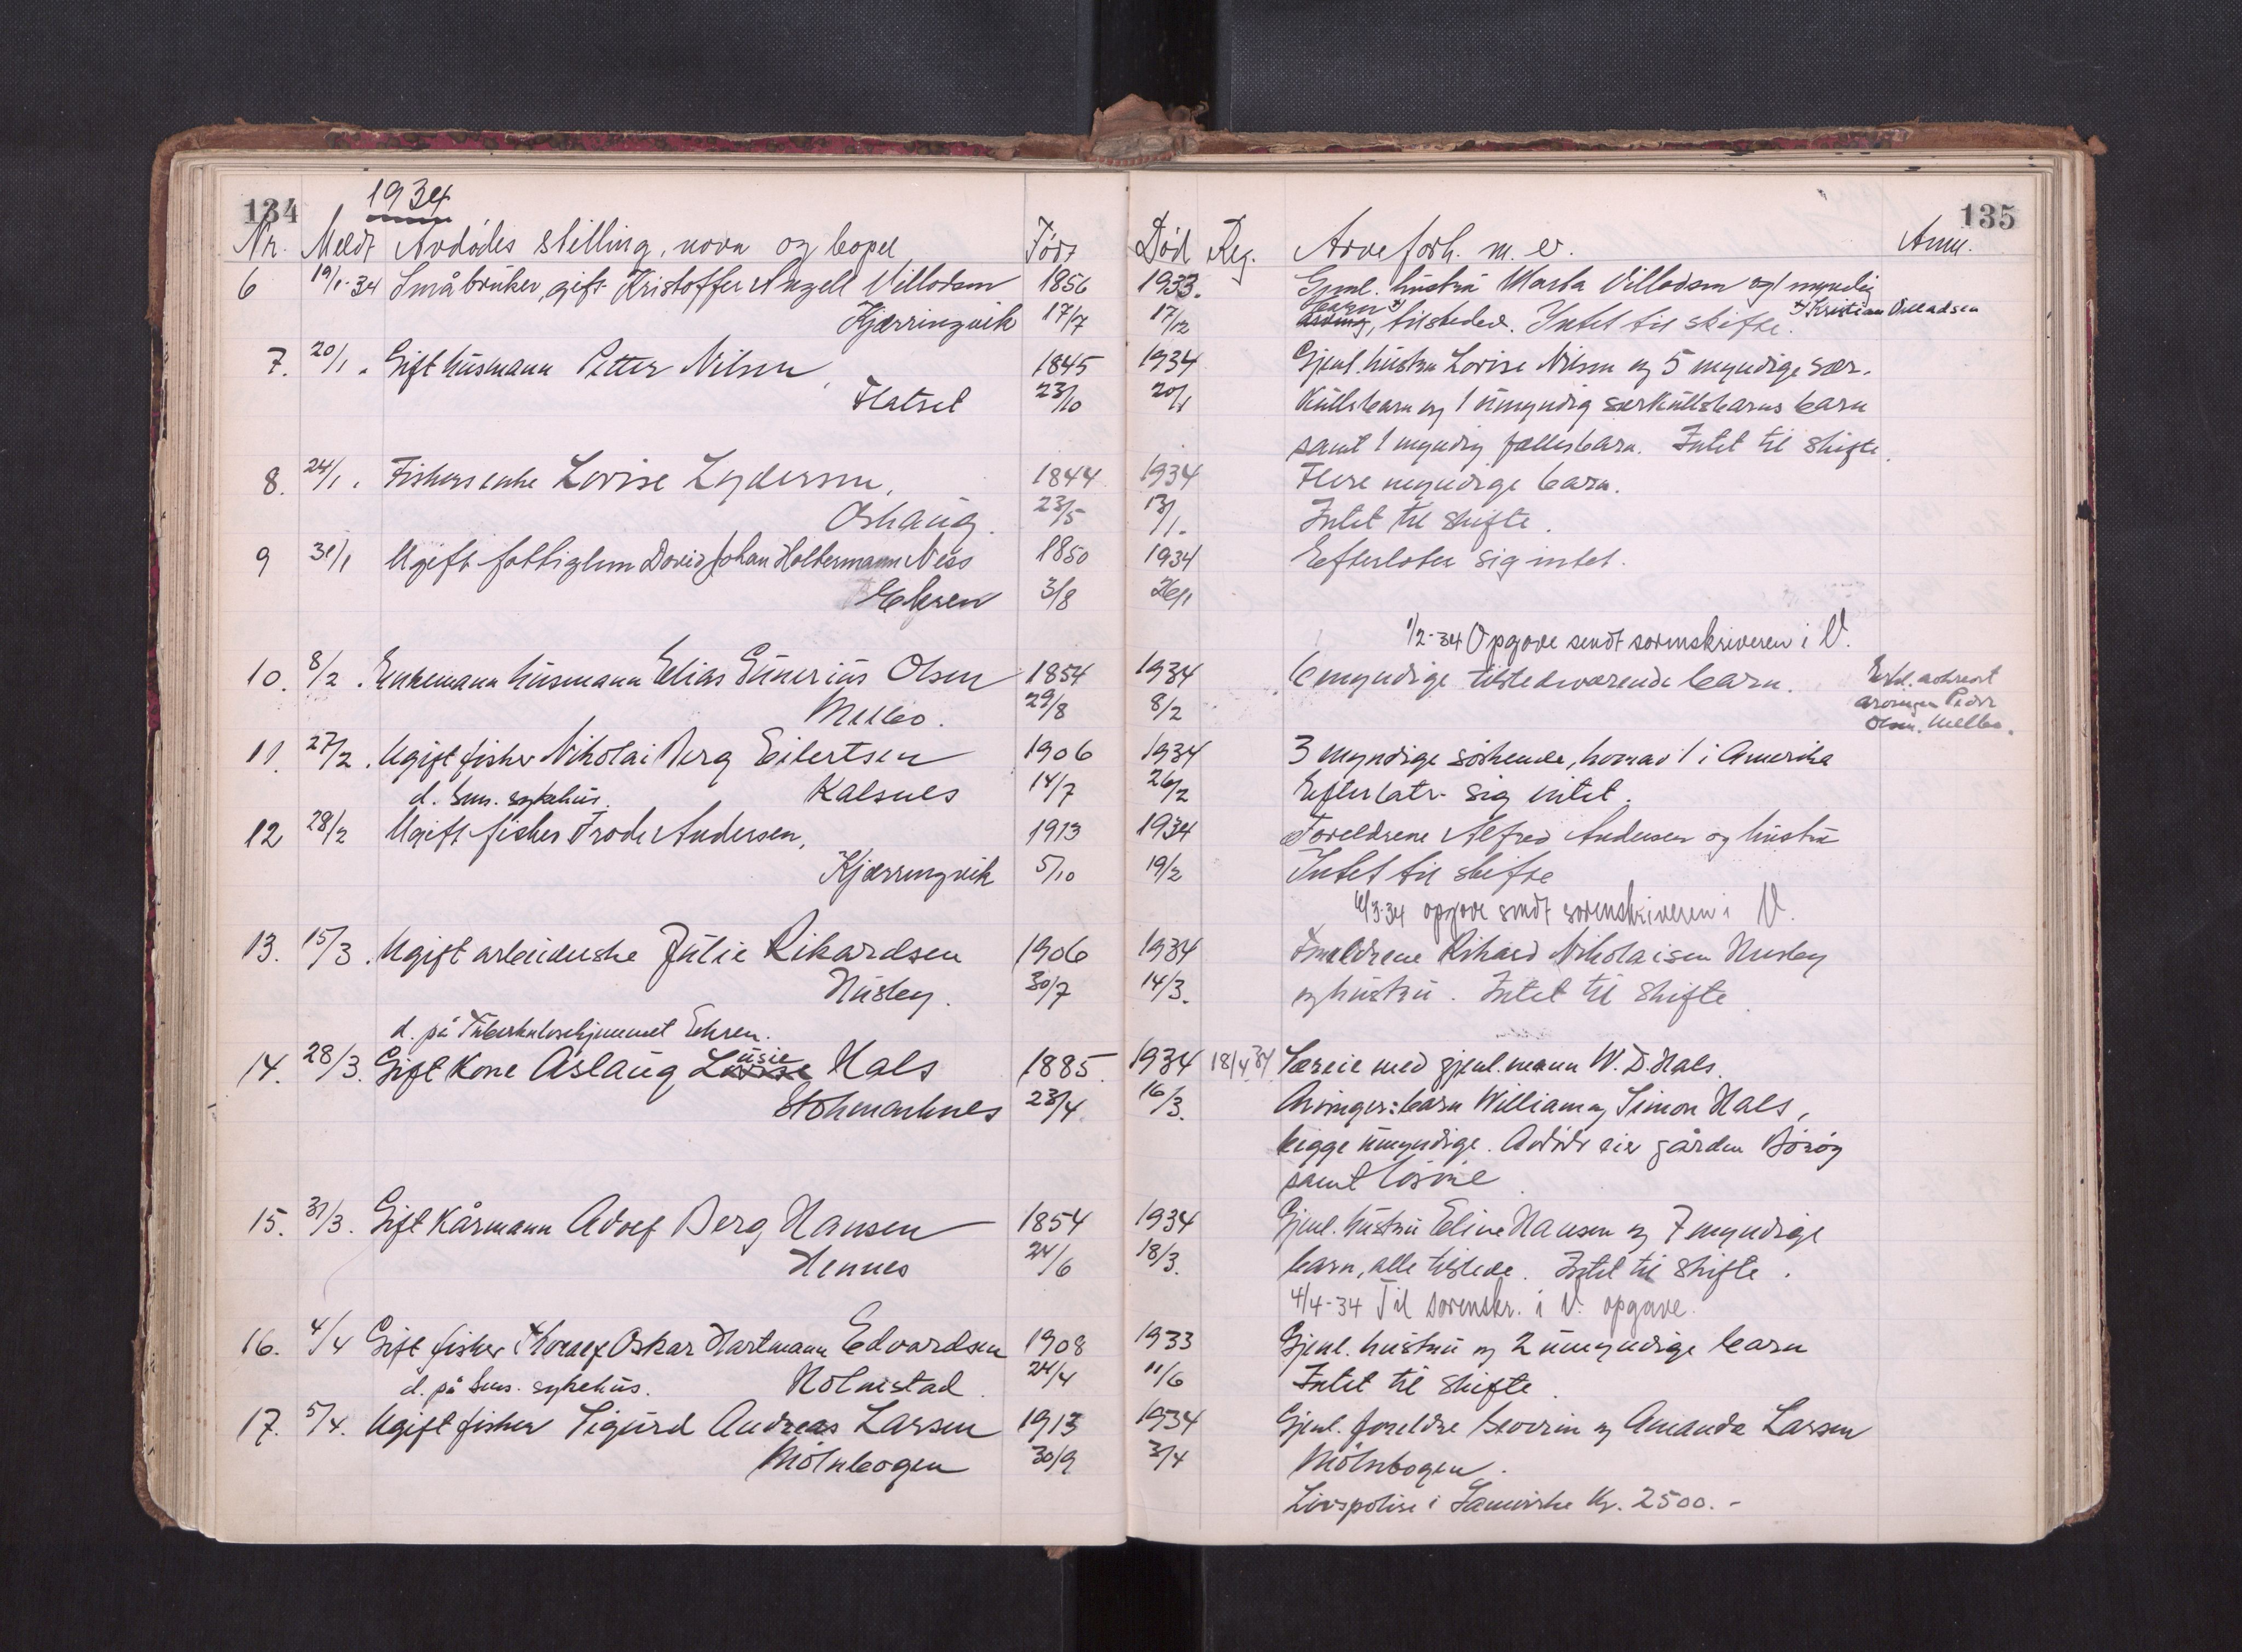 134
1934
Nr. Meldt Avdødes stilling, navn og bopel Født
6 19/1-34 Småbruker, gift Kristoffer Angell Villadsen 1856
Kjærringvik 17/7
7. 20/1. Gift husmann Petter Nilsen, 1845
Flatset 23/10
8. 24/1. Fiskers enke Lovise Lydersen, 1844
Oshaug. 23/5
9 31/1 Ugift fattiglem David Johan Holtermann Ness 1850
Ekren 3/8
10. 8/2. Enkemann husmann Elias Gunerius Olsen 1854
Melbo. 29/8
11. 27/2. Ugift fisker Nikolai Berg Eilertsen 1906
d. Smn. sykehus. Kalsnes 14/7
12 28/2 Ugift fisker Frode Andersen, 1913
Kjærringvik 5/10
13. 15/3. Ugift arbeiderske Julie Rikardsen 1906
Husby. 30/7
d. på Tuberkulosehjemmet Ekren.
14. 28/3. Gift kone Aslaug Lovise usie Hals 1885.
Stokmarknes 23/4.
15. 31/3. Gift kårmann Adolf Berg Hansen 1854
Hennes 24/6
16. 4/4 Gift fisker Thoralf Oskar Hartmann Edvardsen 1908
d. på Smn. sykehus. Holmstad. 24/4
17. 5/4. Ugift fisker Sigurd Andreas Larsen 1913
Mølnbogen 30/9
135
Død Reg. Arveforh. m. v. Anm.
1933. Gjenl. hustru Marta Villadsen og 1 myndig
17/12 arving barn x), tilstede. Intet til skifte. x) Kristian Villadsen
1934 Gjenl. hustru Lovise Nilsen og 5 myndige sær-
20/1 kullsbarn og 1 umyndig særkullsbarns barn
samt 1 myndig fellesbarn. Intet til skifte.
1934 Flere myndige barn.
13/1. Intet til skifte.
1934 Efterlater sig intet.
26/1
1/2-34 Opgave sendt sorenskriveren i V.
1934 6 myndige tilstedeværende barn. Erkl. avkrevt
8/2 arvingen Peder
Olsen, Melbo.
1934 3 myndige søskende, hvorav 1 i Amerika
26/2 Efterlater sig intet.
1934 Foreldrene Alfred Andersen og hustru
19/2 Intet til skifte
6/3-34 opgave sendt sorenskriveren i V.
1934 Foreldrene Rikard Nikolaisen Husby
14/3. og hustru. Intet til skifte.
1934 18/4 34 Særeie med gjenl. mann W. D. Hals.
16/3. Arvinger: barn William og Simon Hals,
begge umyndige. Avdøde eier gården Børøy
samt løsøre
1934 Gjenl. hustru Eline Hansen og 7 myndige
18/3. barn, alle tilstede. Intet til skifte.
4/4-34 Til sorenskr. i V. opgave.
1933 Gjenl. hustru og 2 umyndige barn
11/6 Intet til skifte.
1934 Gjenl. foreldre Severin og Amanda Larsen
3/4 Mølnbogen.
Livspolise i Samvirke Kr. 2500.-